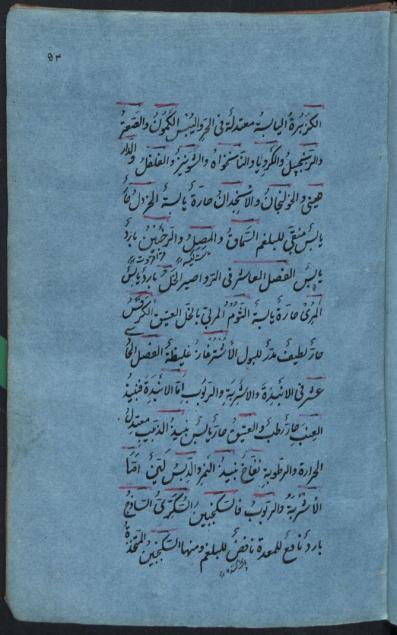 ٩٣
الكزبرة اليابسة معتدلة في الحر واليبس الكمون والصعتر
والزنجبيل والكرويا والنانخواه والشونيز والفلفل والدار
صيني والخولنجان والانجدان حارة يابسة الخردل حار
يابس منقي للبلغم السماق والمصل والترنجبين بارد
يابس الفصل العاشر في الرواصير الخل بارد يابس
المري حارة يابسة الثوم المربى بالخل العتيق الكرفس
حار لطيف مدر للبول الاشترغاز غليظة الفصل الحا
عشر في الانبذة والاشربة والربوب اما الانبذة فنبيذ
العنب حار رطب والعتيق حار يابس نبيذ الزبيب معتدل
الحرارة والرطوبة نفاخ نبيذ التمر والدبس اما
الاشربة والربوب فالسكنجبين السكري الساذج
بارد نافع للمعدة نافض للبلغم ومنها السكنجبين المتخذة